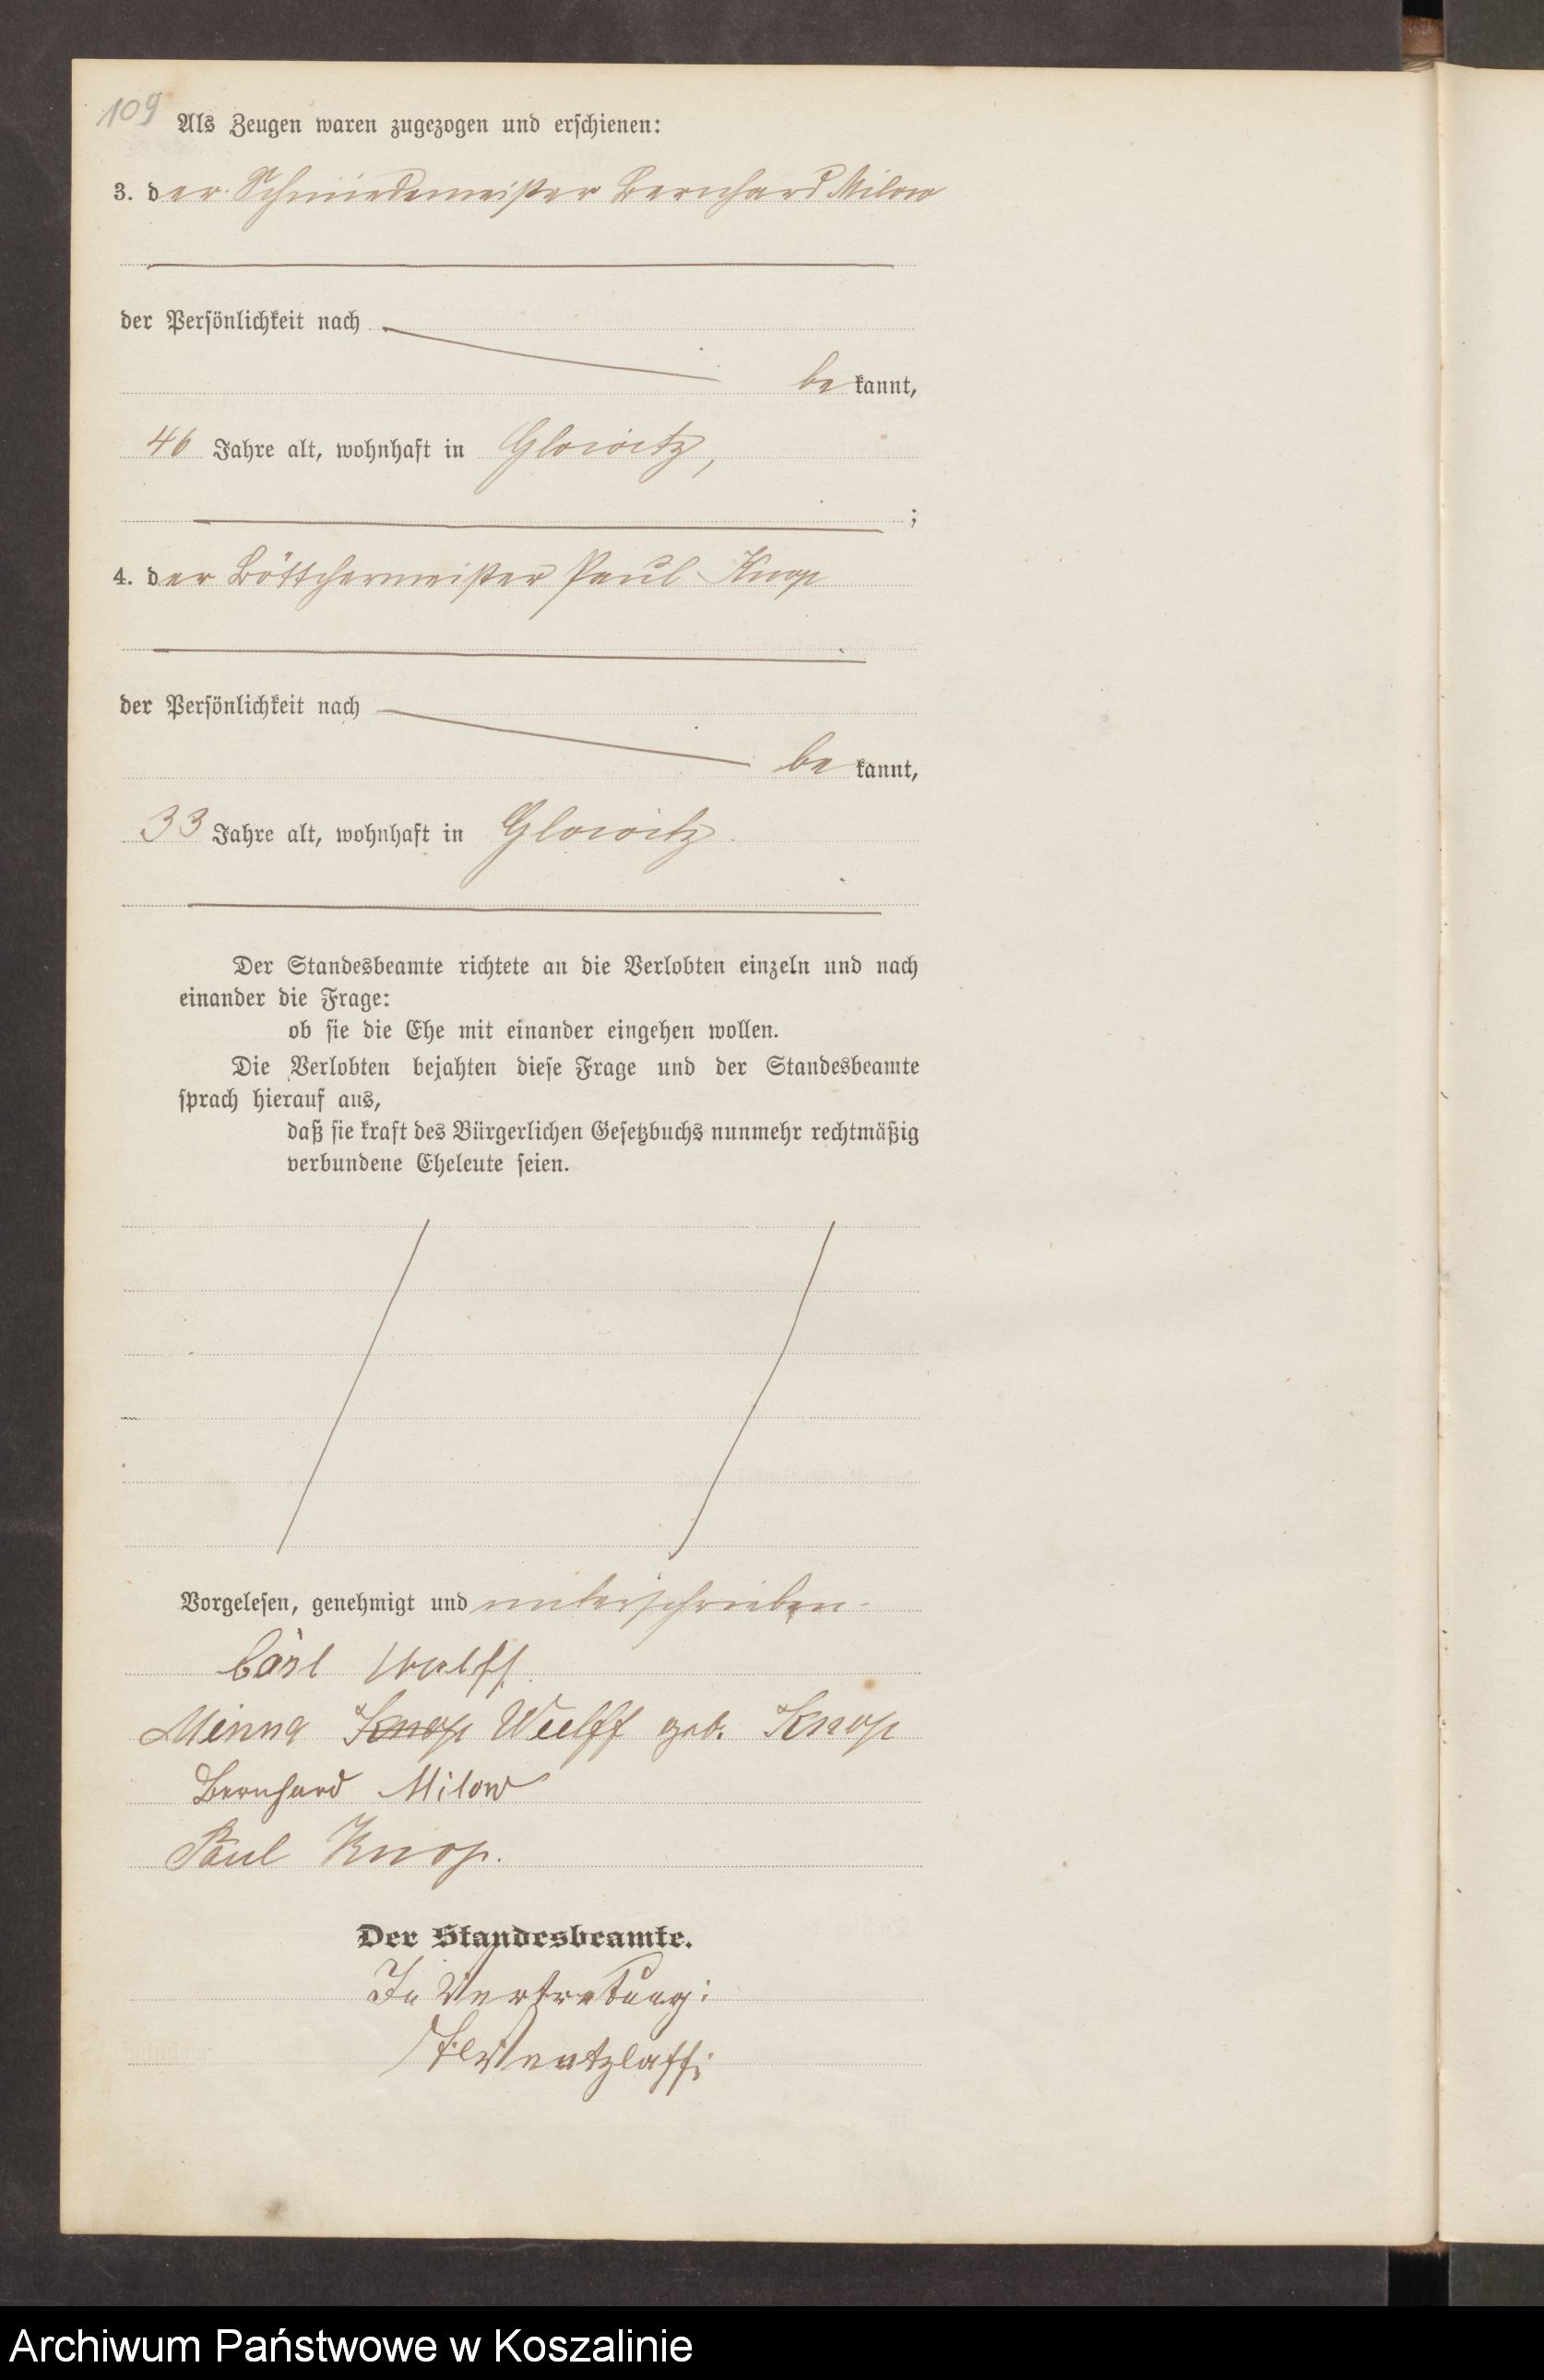 109
Als Zeugen waren zugezogen und erschienen:
3. der Schmiedemeister Bernhard Milow
der Persönlichkeit nach
be kannt,
46 Jahre alt, wohnhaft in Glowitz,
;
4. der Böttchermeister Paul Knop
der Persönlichkeit nach
be kannt,
33 Jahre alt, wohnhaft in Glowitz.
Der Standesbeamte richtete an die Verlobten einzeln und nach
einander die Frage:
ob sie die Ehe mit einander eingehen wollen.
Die Verlobten bejahten diese Frage und der Standesbeamte
sprach hierauf aus,
daß sie kraft des Bürgerlichen Gesetzbuchs nunmehr rechtmäßig
verbundene Eheleute seien.
Vorgelesen, genehmigt und unterschrieben.
Carl Wulff.
Minna Knop Wulff geb. Knop
Bernhard Milow
Paul Knop.
Der Standesbeamte.
In Vertretung:
Wentzlaff
Archiwum Państwowe w Koszalinie